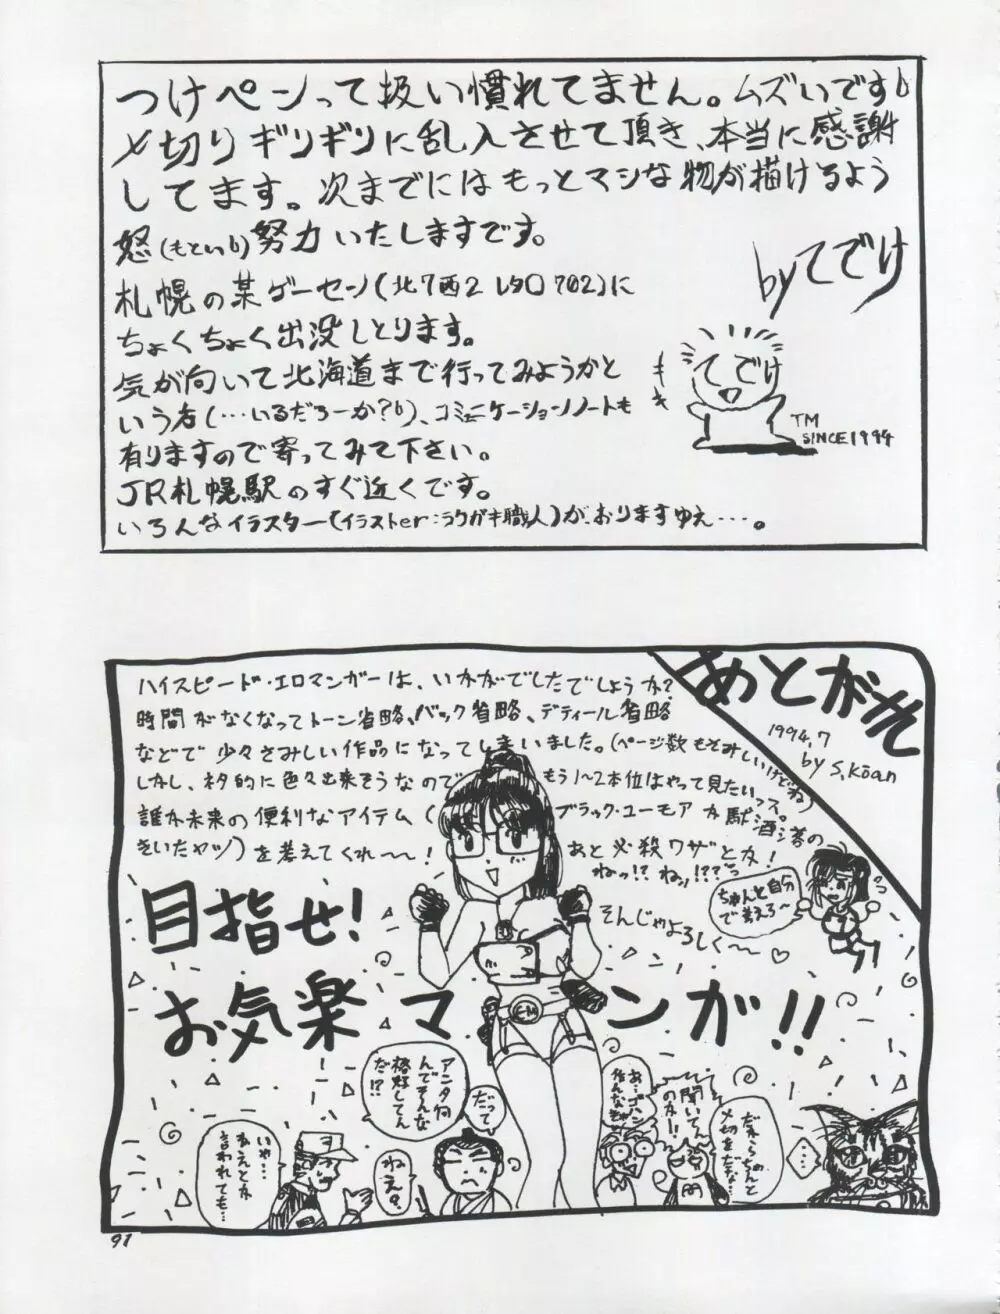 つけペンって扱い慣れてません。ムズいです
〆切りギリギリに乱入させて頂き、本当に感謝
してます。次までにはもっとマシな物が描けるよう
怒(もとい)努力いたしますです。
byてでけ
札幌の某ゲーセン(北7西2 レタロ702)に
ちょくちょく出没しとります。
気が向いて北海道まで行ってみようかと
いう者(…いるだろーか?)、コミュニケーションノートも
有りますので寄ってみて下さい。
JR札幌駅のすぐ近くです。
いろんなイラスター(イラストer:ラクガキ職人)が、おりますゆえ…。
てでけ
TM
SINCE1994
あとがき
1994.7
by S.Kōan
ハイスピード・エロマンガーは、いかがでしたでしょうか?
時間がなくなってトーン省略、バック省略、ディティール省略
などで少々さみしい作品になってしまいました。(ページ数もさみしいけどね)
しかし、ネタ的に色々出来そうなので もう1〜2本位はやって見たいっス。
誰か未来の便利なアイテム( ブラック・ユーモアか駄洒落の
きいたヤツ)を考えてくれ〜〜!
あと必殺ワザとか!
ねっ!?ねっ!??
ちゃんと自分で考えろ〜
そんじゃよろしく〜〜♡
目指せ!
お気楽マンガ!!
アンタ何んでそんな格好してんだ!?
だって
ねえ?
いや…ねえとか言われても…
お…ゴハン
聞いてんのか!!
だからちゃんと〆切をだな…
…
91